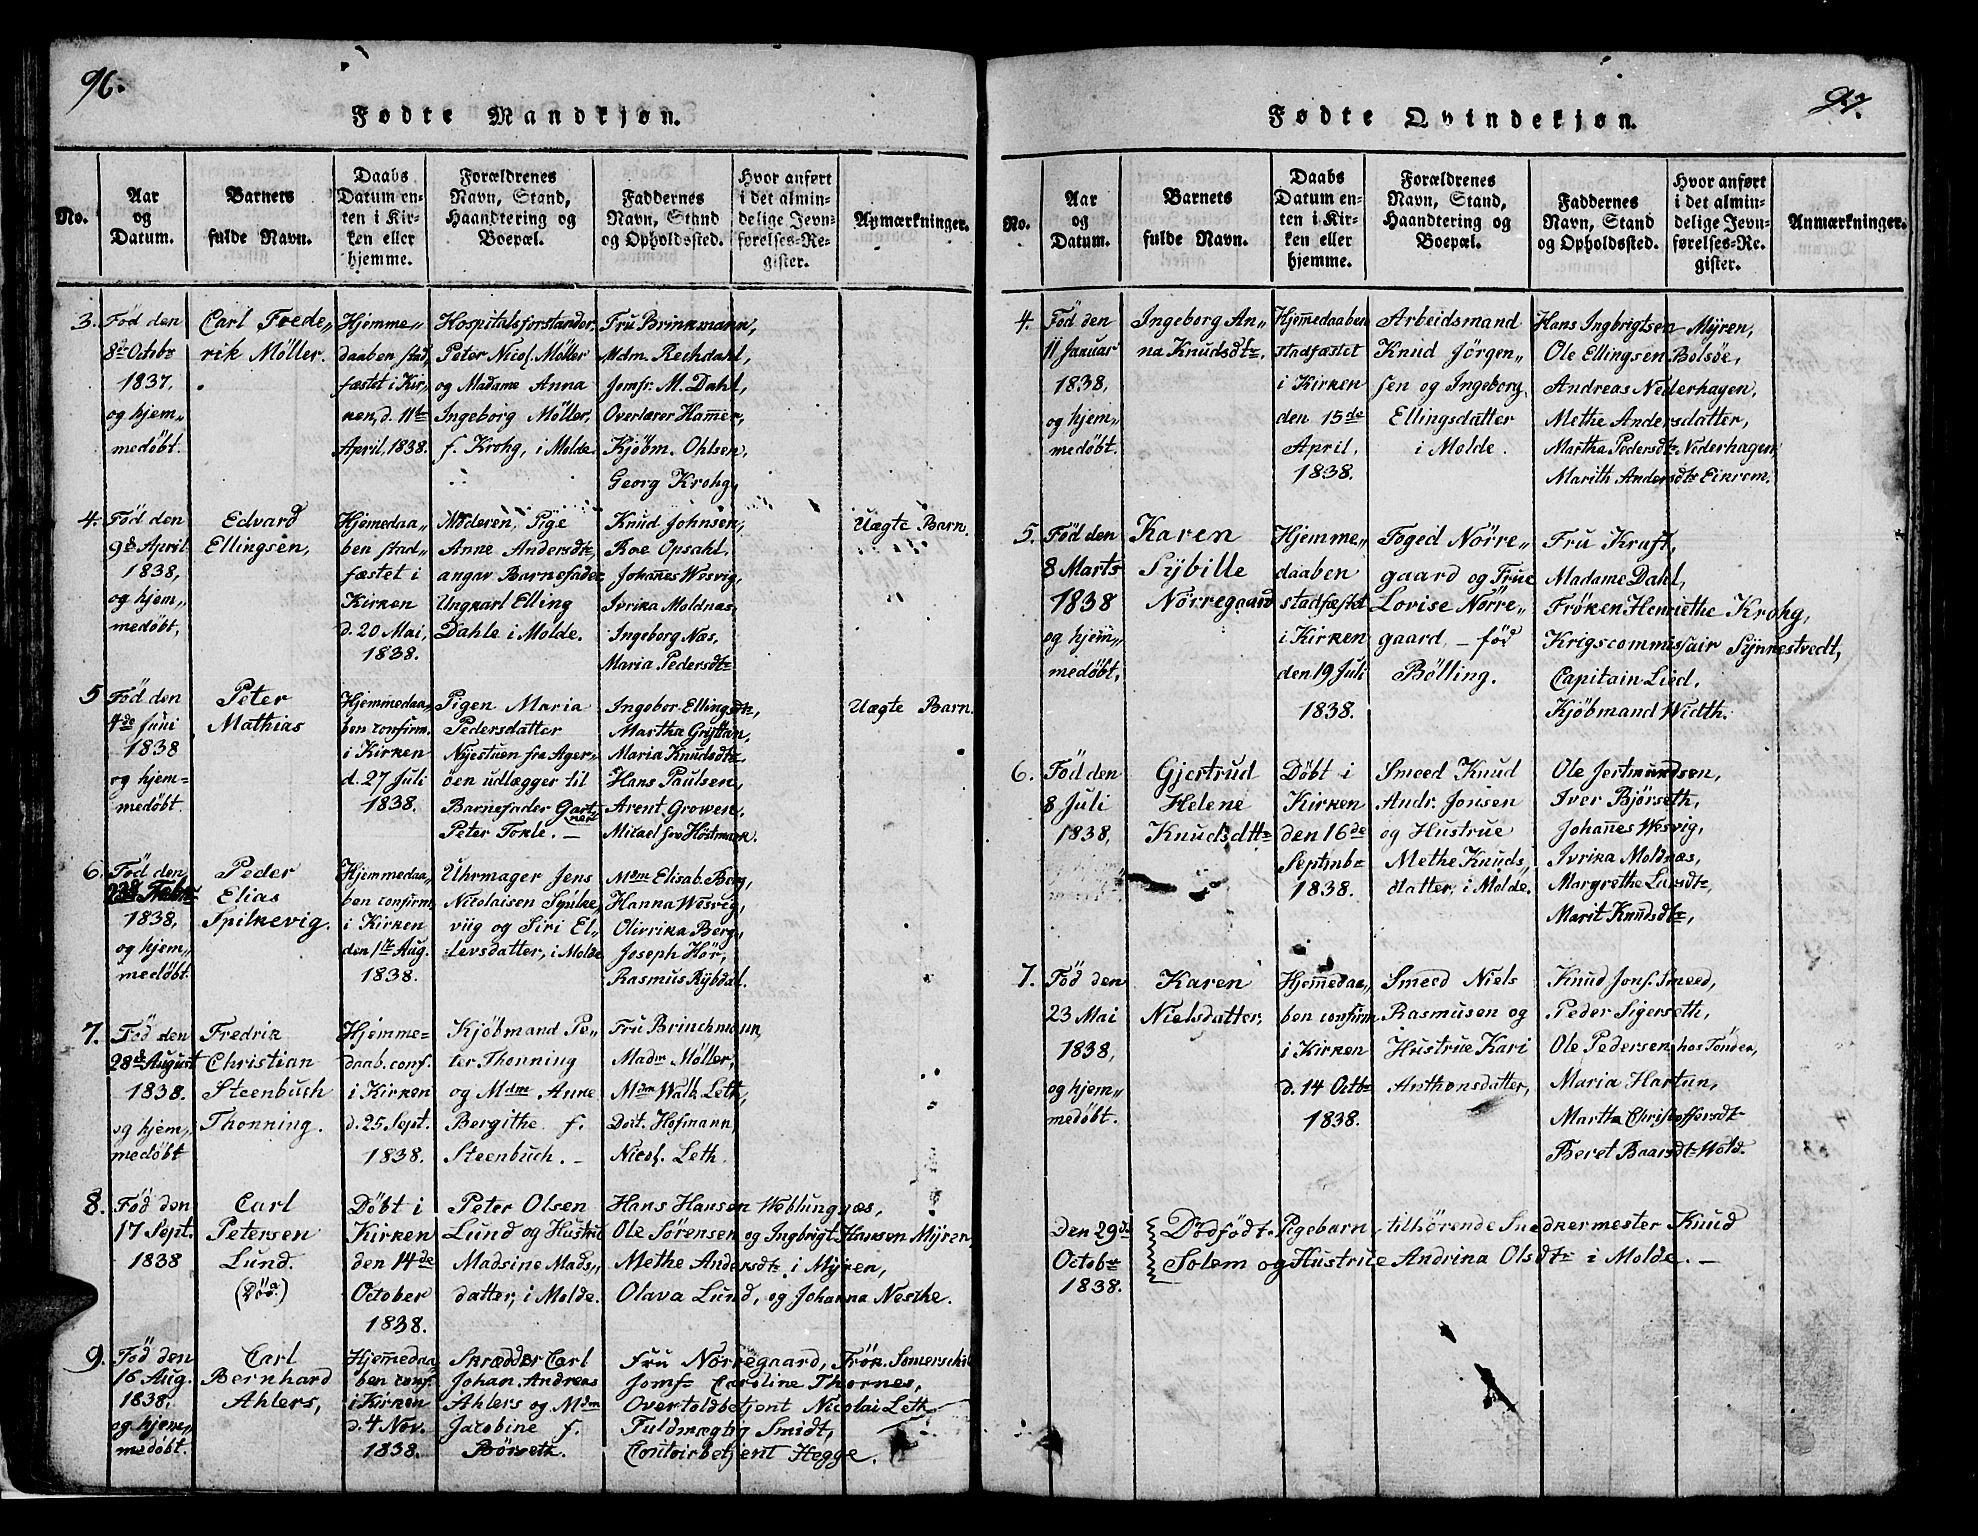 96.
Fødte Mandkjøn.
No.
Aar
og
Datum.
Barnets
fulde Navn.
Daabs
Datum en-
ten i Kir-
ken eller
hjemme.
Forældrenes
Navn, Stand,
Haandtering og
Boepæl.
Faddernes
Navn, Stand
og Opholdssted.
Hvor anført
i det almin-
delige Jevn-
førelses-Re-
gister.
Anmærkninger.
3.
Fød den
8de Octobr
1837,
og hjem„
medøbt.
Carl Frede„
rik Møller.
Hjemme„
daaben stad„
fæstet i Kir„
ken, d. 11te
April, 1838.
Hospitalsforstander,
Peter Nicol. Møller
og Madame Anna
Ingeborg Møller,
f. Krohg, i Molde.
Fru Brinkmann,
Mdm. Rechdahl,
Jomfr. M. Dahl,
Overlærer Ham̄er,
Kjöbm. Ohlsen,
Georg Krohg,
4.
Fød den
9de April
1838,
og hjem„
medøbt,
Edvard
Ellingsen,
Hjemedaa„
ben stad„
fæstet i
Kirken
d. 20 Mai,
1838.
Moderen, Pige
Anne Andersdtr
angav Barnefader
Ungkarl Elling
Dahle i Molde.
Knud Johnsen,
Roe Opsahl,
Johan̄es Wosvig,
Ivrika Moldnæs,
Ingeborg Næs,
Maria Pedersdtr
Uægte Barn.
5
Fød den
4de Juni
1838
og hjem=
medøbt.
Peter
Mathias
Hjemmedaa„
ben confirm.
i Kirken
d. 27 Juli
1838.
Pigen Maria
Pedersdatter
Nyestuen fra Ager„
öen udlægger til
Barnefader Gart
ner
Peter Tokle. —
Ingebor Ellingsdtr,
Martha
Maria Knudsdtr
Hans Paulsen,
Arent Growen,
Mikael
Uægte Barn.
6.
Fød den
23de Febr
1838,
og hjem„
medøbt.
Peder
Elias
Spilkevig.
Hjemmedaa„
ben confirm.
i Kirken
den 1ste Aug.
1838.
Uhrmager Jens
Nicolaisen Spilke„
viig og Siri El„
=levsdatter, i Molde
Mdm Elisab. Berg,
Hanna Wosvig,
Olivrika Berg,
Joseph Hör,
Rasmus Rybdal.
7.
Fød den
28de August
1838.
og hjem„
medøbt
Fredrik
Christian
Steenbuch
Thonning.
Hjemme=
daab. conf.
i Kirken
d. 25 Sept.
1838.
Kjöbmand Pe„
ter Thonning
og Mdm Anne
Bergithe f.
Steenbuch. —
Fru Brinchmann,
Madm Møller,
Mdm Walb. Leth,
Dort. Hofmann,
Nicol. Leth.
8.
Fød den
17 Sept.
1838
Carl
Petersen
Lund.
(Död)
Döbt i
Kirken
den 14de
October
1838.
Peter Olsen
Lund og Hustru
Madsine Mads„
datter, i Molde.
Hans Hansen Weblungnæs,
Ole Sørensen og Ingbrigt Hansen Mÿren,
Methe Andersdtr i Mÿren,
Olava Lund, og Johanna Nesthe.
9.
Fød den
16 Aug.
1838,
og hjem„
medøbt.
Carl
Bernhard
Ahlers,
Hjem̄edaa
ben conf.
i Kirken
d. 4 Nov.
1838.
Skrædder Carl
Johan Andreas
Ahlers og Mdm
Jacobine f.
Börseth.
Fru Nörregaard, Frök. Som̄erschil
Jomfr Caroline Thornes,
Overtoldbetjent Nicolai Leth
Fuldmægtig Smidt,
Contoirbetjent Hegge.
97.
Fødte Qvindekjøn.
No.
Aar
og
Datum.
Barnets
fulde Navn.
Daabs
Datum en-
ten i Kir-
ken eller
hjemme.
Forældrenes
Navn, Stand,
Haandtering og
Boepæl.
Faddernes
Navn, Stand
og Opholdssted.
Hvor anført
i det almin-
delige Jevn-
førelses-Re-
gister.
Anmærkninger.
4.
Fød den
11 Januar
1838,
og hjem„
medøbt.
Ingeborg An„
na Knudsdtr.
Hjem̄edaaben
stadfæstet
i Kirken
den 15de
April,
1838.
Arbeidsmand
Knud Jörgen„
sen og Ingeborg
Ellingsdatter
i Molde.
Hans Ingbrigtsen Mÿren,
Ole Ellingsen Bolsöe,
Andreas Nederhagen,
Methe Andersdatter,
Martha Pedersdtr Nederhagen
Marith Andersdtr Eikrem.
5.
Fød den
8 Marts
1838
og hjem„
medøbt,
Karen
Sybille
Nörregaard
Hjemme„
daaben
stadfæstet
i Kirken
den 19 Juli
1838.
Foged Nörre„
gaard og Frue
Lovise Nörre„
gaard, — fød
Bölling.
Fru Kraft,
Madame Dahl,
Fröken Henriethe Krohg,
Krigscommissair Synnestvedt,
Capitain Lied,
Kjöbmand Width.
6.
Fød den
8 Juli
1838,
Gjertrud
Helene
Knudsdtr
Döbt i
Kirken
den 16de
Septmbr
1838.
Smed Knud
Andr. Jonsen
og Hustrue
Methe Knuds„
datter, i Molde.
Ole Jertmundsen,
Iver Bjørseth,
Johan̄es Wosvig,
Ivrika Moldnæs,
Margrethe Larsdtr,
Marit Knudsdtr,
7.
Fød den
23 Mai
1838,
og hjem„
medøbt.
Karen
Nielsdatter,
Hjem̄edaa„
ben confirm
i Kirken
d. 14 Octbr
1838.
Smed Niels
Rasmusen og
Hustrue Kari
Anthonsdatter,
Knud Jons. Smed,
Peder Sigerseth,
Ole Pedersen hos Tönder,
Maria Hartun,
Martha Christoffersdtr
Beret Baarsdtr Wold.
Den 29de
Octobr
1838.
Dödfödt Pigebarn tilhörende Snedkermester Knud
Solem og Hustrue Andrina Olsdtr i Molde. —